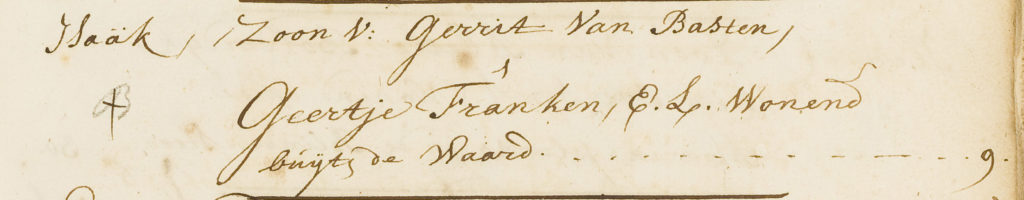 Isaäk, Zoon V: Gerrit Van Basten,
Geertje Franken, E. L. Wonend
buÿts de Waard. . . . . . . . . . . 9.